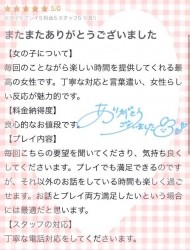 ★★★★★ 5.0
またまたありがとうございました
【女の子について】
毎回のことながら楽しい時間を提供してくれる最
高の女性です。丁寧な対応と言葉遣い、女性らし
い反応が魅力的です。
【料金納得度】
良心的なお値段です。
ありがとう
【プレイ内容】
毎回こちらの要望を聞いてくださり、気持ち良く
してくださいます。プレイでも満足できるのです
が、それ以外のお話をしている時間も楽しく過ご
せます。お話とプレイ両方満足したいという場合
には最適だと思います。
【スタッフの対応】
丁寧な電話対応をしてくださいます。